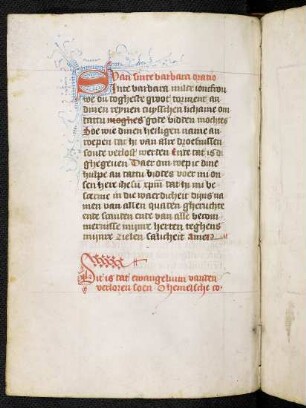 Van sinte barbara oratio
Sinte barbara maertelaer ioncfrou
we du toghest groot torment an
dinen reynen cuysschen lichame om
tattu moghes gode bidden mochtes
Soe wie dinen heiligen name an
roepen tat hi van alre droefnissen
soude verlost werden Ende tat is di
ghegeven Daer om roep ic dine
hulpe an tattu biddes voer mi on
sen here ihesu xpm tat hi mi be
scerme in die waerdicheit dijns na
men van allen quaden gherichte
ende scanden ende van alle becom
mernisse mijnre herten teghens
mijnre zielen salicheit Amen
Dit is tat ewangelium vanden
verloren soen Dhemelsche co